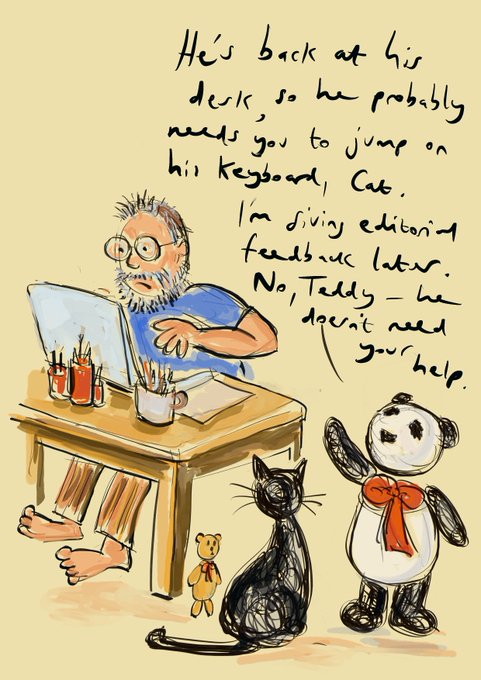 He's back at his
desk, so he probably
needs you to jump on
his keyboard, Cat.
I'm giving editorial
feedback later.
No, Teddy – he
doesn't need
your help.